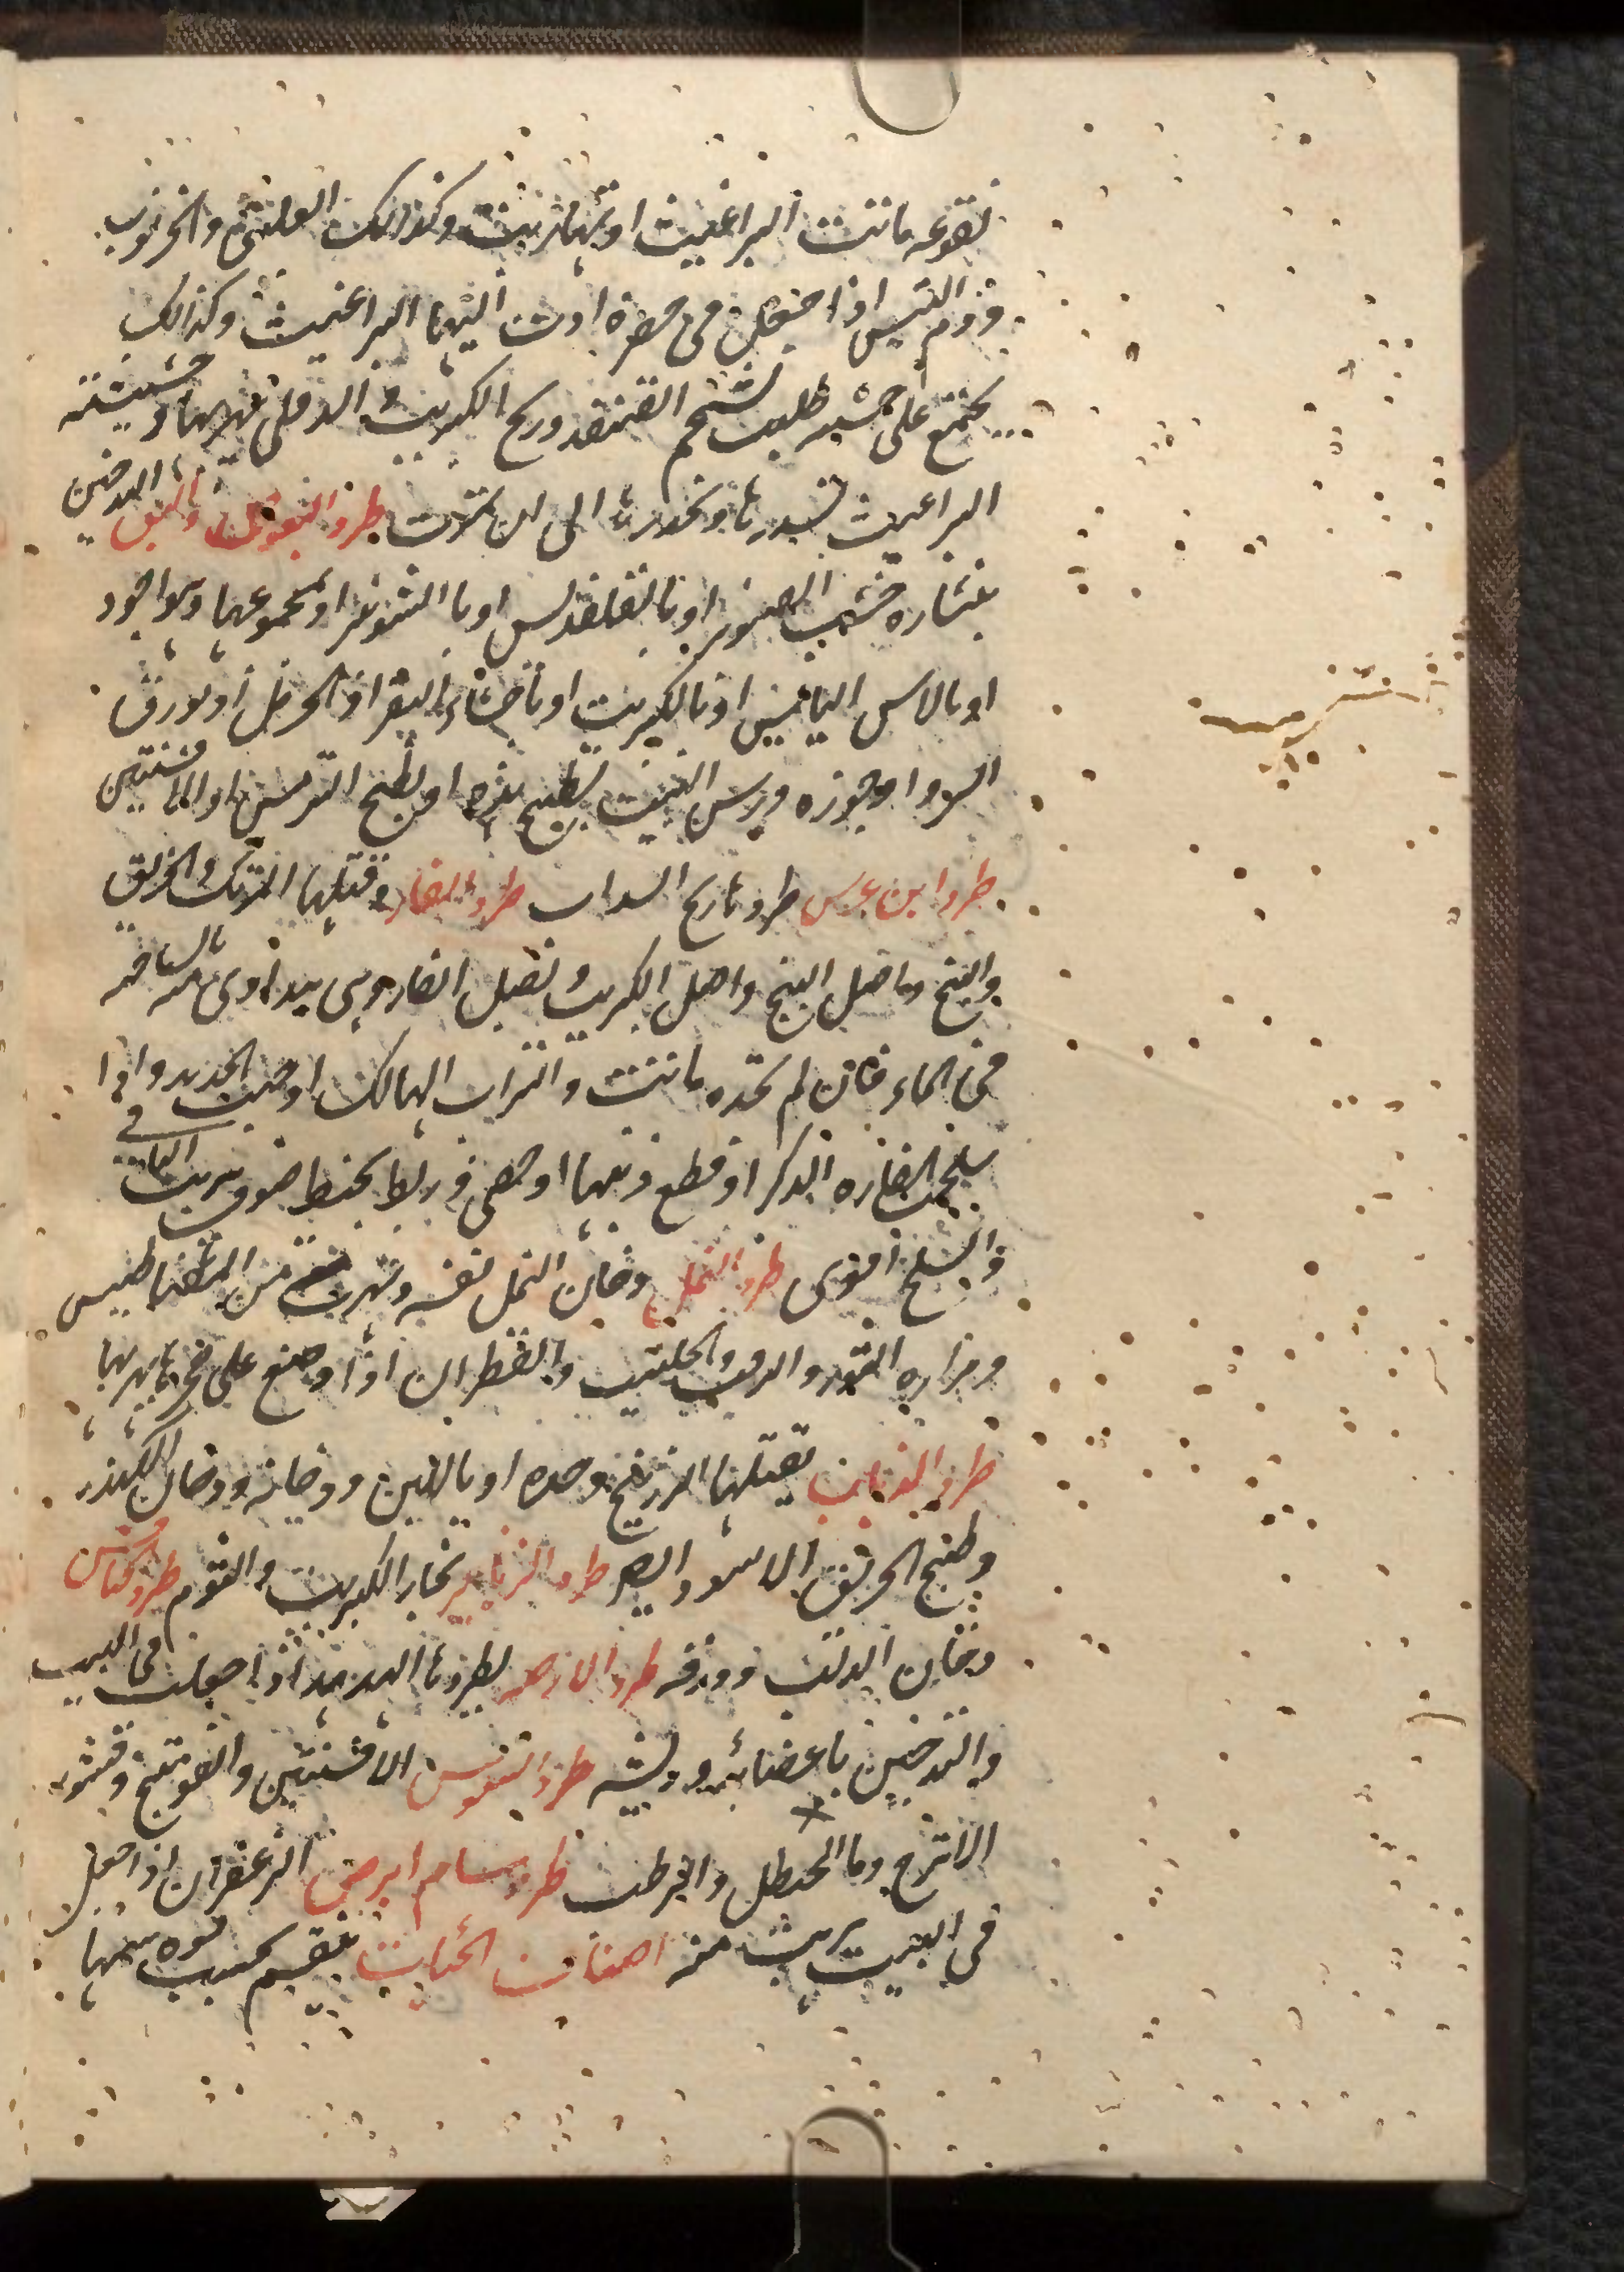 نقوعه ماتت البراغيث او تهاربت وكذلك العليق والخرنوب
ودم التيس اذا جعل فى حفرة اوت اليها البراغيث وكذلك
يجتمع على خشبه طليت بشحم القنفد وريح الكبريت والدفلى يهربها وحشيشته
البراغيث يسدرها ويخدرها الى ان تموت طرد البعوض والبق التدخين
بنشاره خشب الصنوبر او بالقلقديس او بالشونيز او بمجموعهما وهو اجود
او بالاس اليابس او بالكبريت او باخثاء البقر او الحرمل او بورق
السرو او جوزه ورش البيت بطبيخ هذه او بطبيخ الترمس او الافسنتين
طرد ابن عرس طردها ريح السداب طرد الفار وقتلها المرتك والخربق
والبنج واصل البنج واصل الكبريت و بصل الفار وهى يتداوى منه بالسباحه
فى الماء فان لم تجده ماتت والتراب الهالك او خبث الحديد واذا
سلخت الفاره الذكر او قطع ذنبها او خصى وربط بخيط صوف هربت الباقيه
والسلخ اقوى طرد النمل دخان النمل نفسه وتهرب من المغناطيس
ومراره الثور والزفت والحلتيت والقطران اذا وضع على جحرها يهربها
طرد الذباب يقتلها الزرنيخ وحده او باللبن ودخانه ودخان الكندر
وطبيخ الخربق الاسود ايضا طرد الزنابير بخار الكبريت والثوم طرد الخنافس
دخان الدلب وورقه طرد الارضه يطردها الهدهد اذا جعلت فى البيت
والتدخين باعضائه وريشه طرد السوس الافسنتين والفوتنج وقشور
الاترج وما الحنظل والقرطب طرد سام ابرص الزعفران اذا جعل
فى البيت هربت منه اصناف الحيات ينقسم بحسب قوه سمها